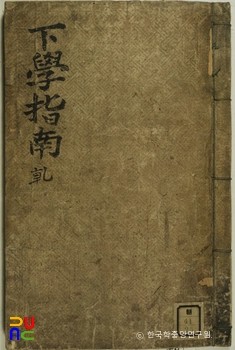 下學指南
乹
© 한국학중앙연구원